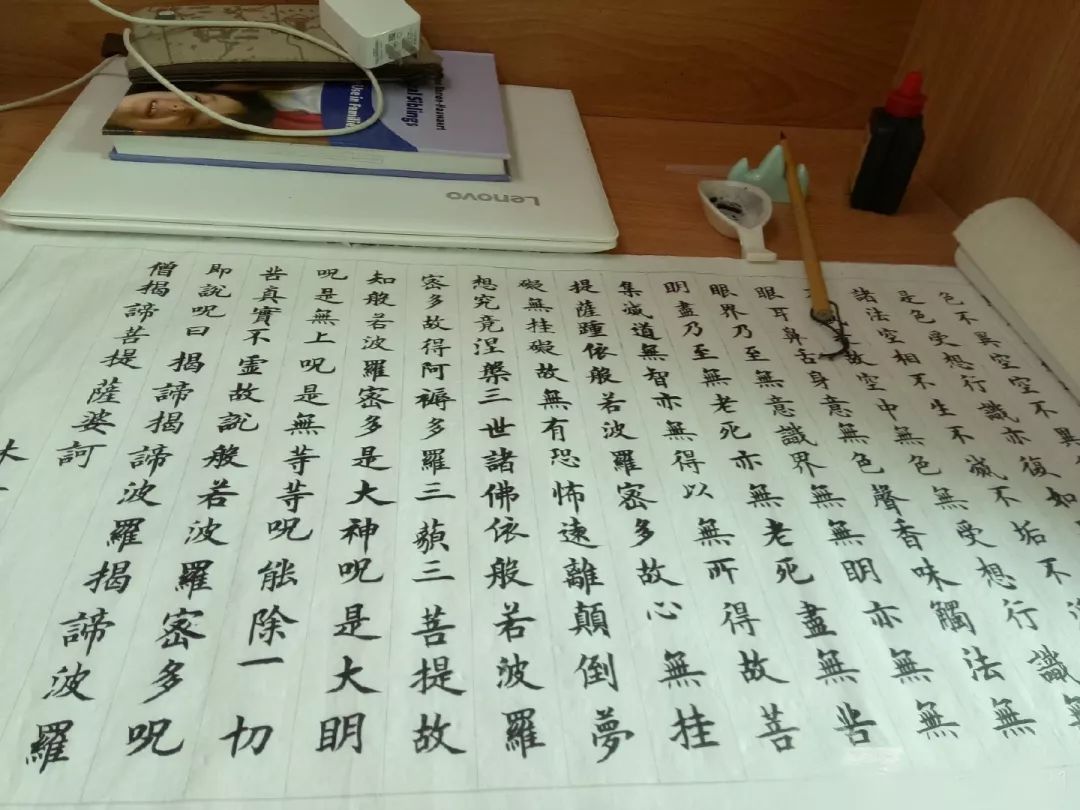 色不異空空不異
是色受想行識亦復如
諸法空相不生不滅不垢不
故空中無色無受想行識無
眼耳鼻舌身意無色聲香味觸法無
眼界乃至無意識界無無明亦無無
明盡乃至無老死亦無老死盡無苦
集滅道無智亦無得以無所得故菩
提薩埵依般若波羅密多故心無挂
礙無挂礙故無有恐怖遠離顛倒夢
想究竟涅槃三世諸佛依般若波羅
密多故得阿耨多羅三藐三菩提故
知般若波羅密多是大神呪是大明
呪是無上呪是無等等呪能除一切
苦真實不虛故說般若波羅密多呪
即說呪曰揭諦揭諦波羅揭諦波羅
僧揭諦菩提薩婆訶
Siblings
Lenovo